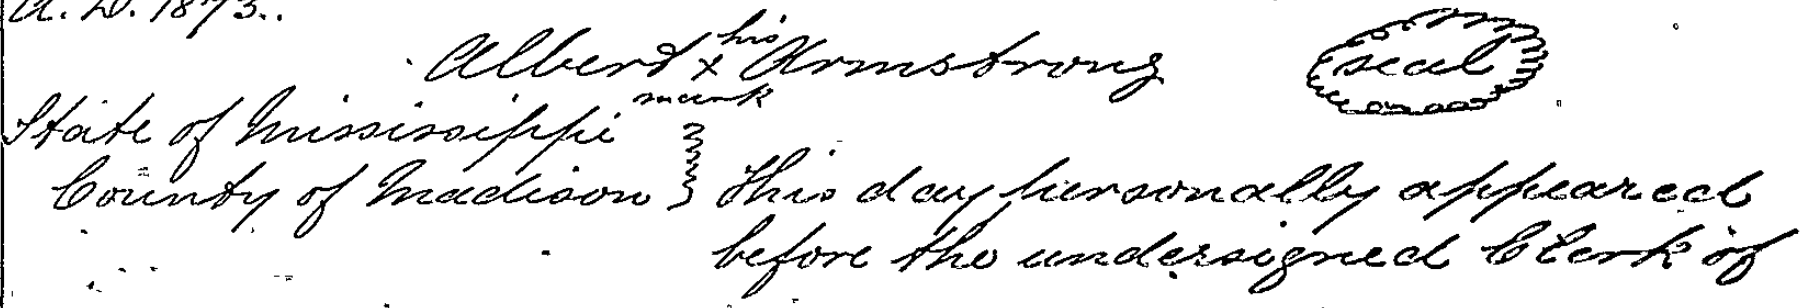 A. D. 1873..
his
Albert x Armstrong seal
mark
State of Mississippi
County of Madison } This day personally appeared
before the undersigned Clerk of